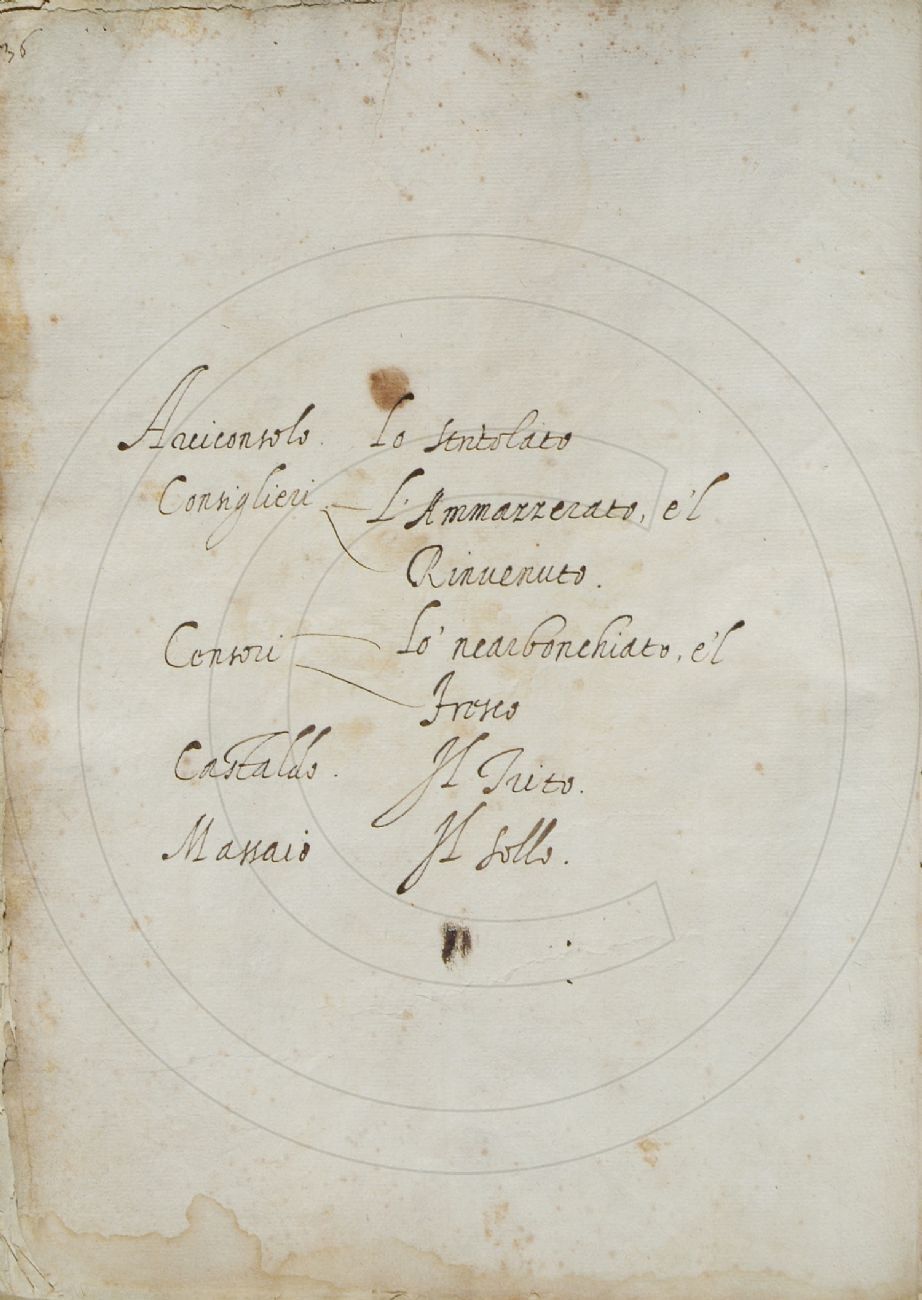 36
Arciconsolo. Lo stritolato
Consiglieri L'Ammazzerato, e'l
Rinvenuto.
Censori Lo' ncarbonchiato, e'l
Fresco
Castaldo. Il Trito.
Massaio Il sollo.